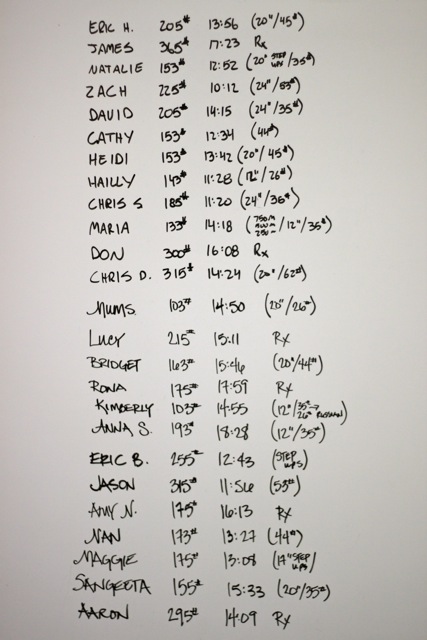 ERIC H. 205# 13:56 (20"/45#)
JAMES 365# 17:23 Rx
NATALIE 153# 12:52 (20" STEP UPS/35#)
ZACH 225# 10:12 (24"/53#)
DAVID 205# 14:15 (24"/35#)
CATHY 153# 12:34 (44#)
HEIDI 153# 13:42 (20"/45#)
HAILLY 143# 11:28 (12"/26#)
CHRIS S 185# 11:20 (24"/36#)
MARIA 133# 14:18 (750M 500M 250M/12"/35#)
DON 300# 16:08 Rx
CHRIS D. 315# 14:24 (20"/62#)
MUMS. 103# 14:50 (20"/26#)
LUCY 215# 15:11 Rx
BRIDGET 163# 15:46 (20"/44#)
RONA 175# 17:59 Rx
KIMBERLY 103# 14:55 (12"/35#→ 26# RUSSIAN)
ANNA S. 193# 18:28 (12"/35#)
ERIC B. 255# 12:43 (STEP UPS)
JASON 315# 11:56 (53#)
AMY N. 175# 16:13 Rx
NAN 173# 13:27 (44#)
MAGGIE 175# 13:08 (17" STEP UPS/
SANGEETA 155# 15:33 (20"/35#)
AARON 295# 14:09 Rx